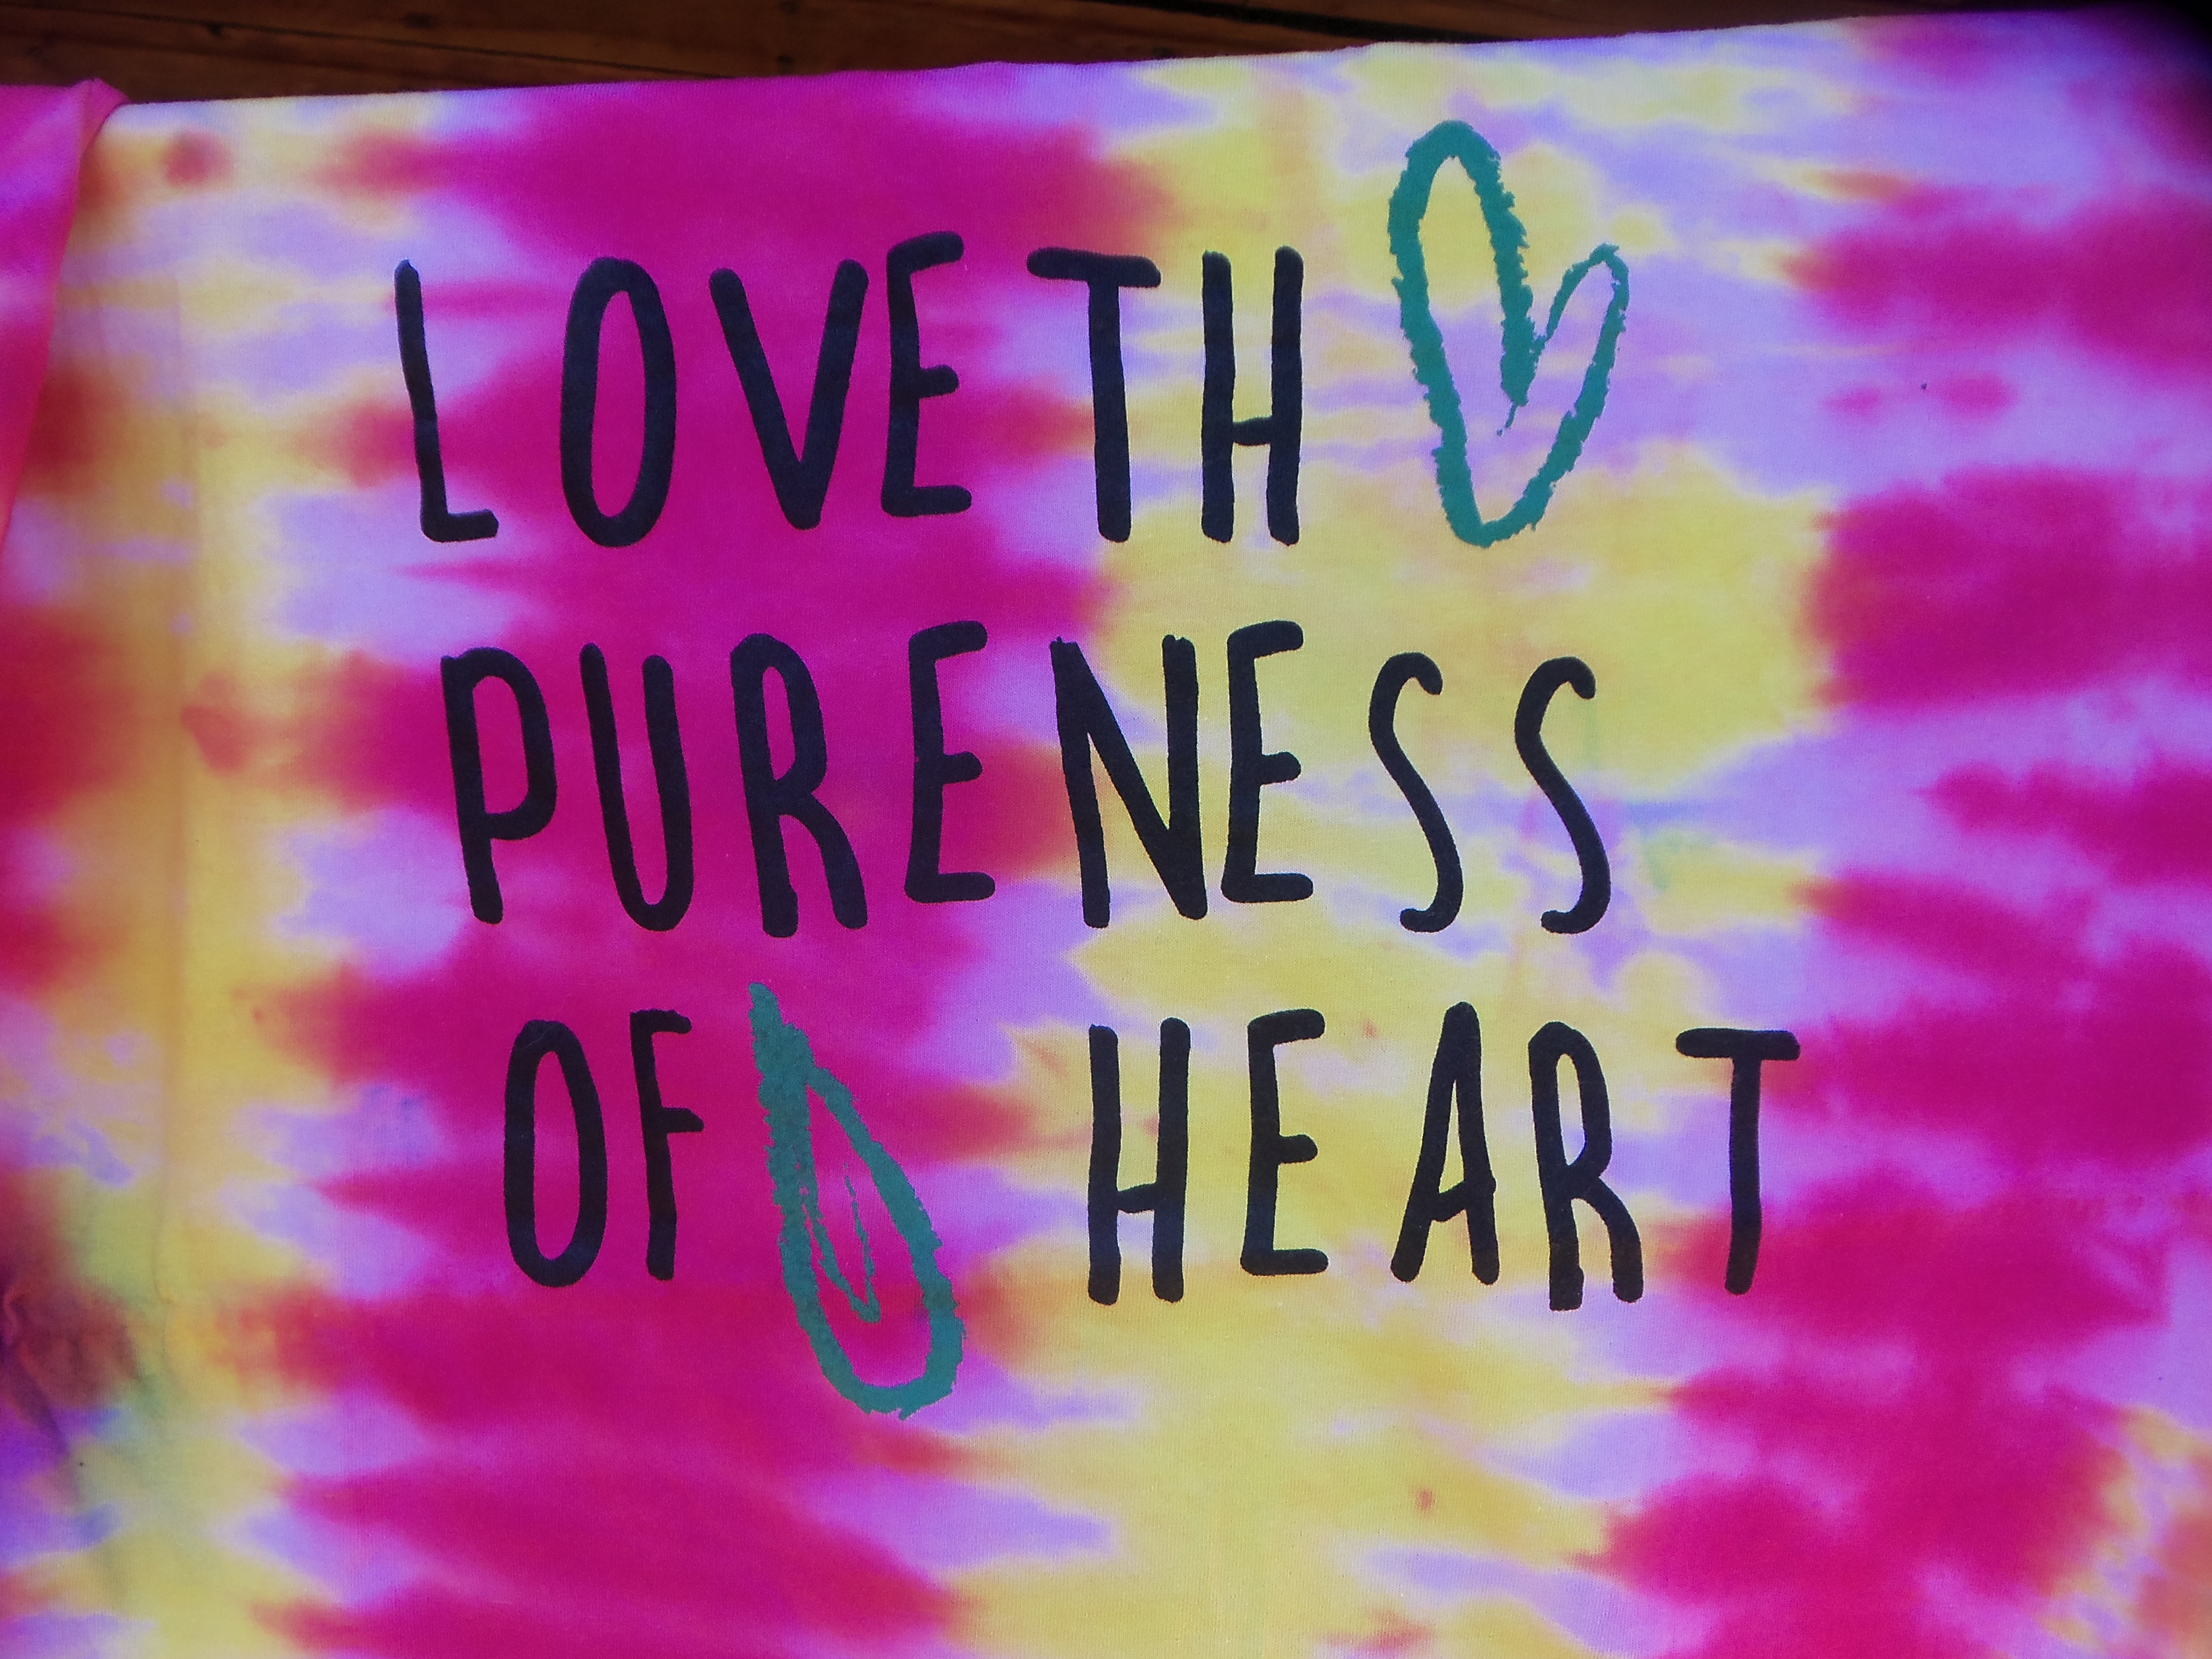 LOVETH
PURENESS
OF HEART